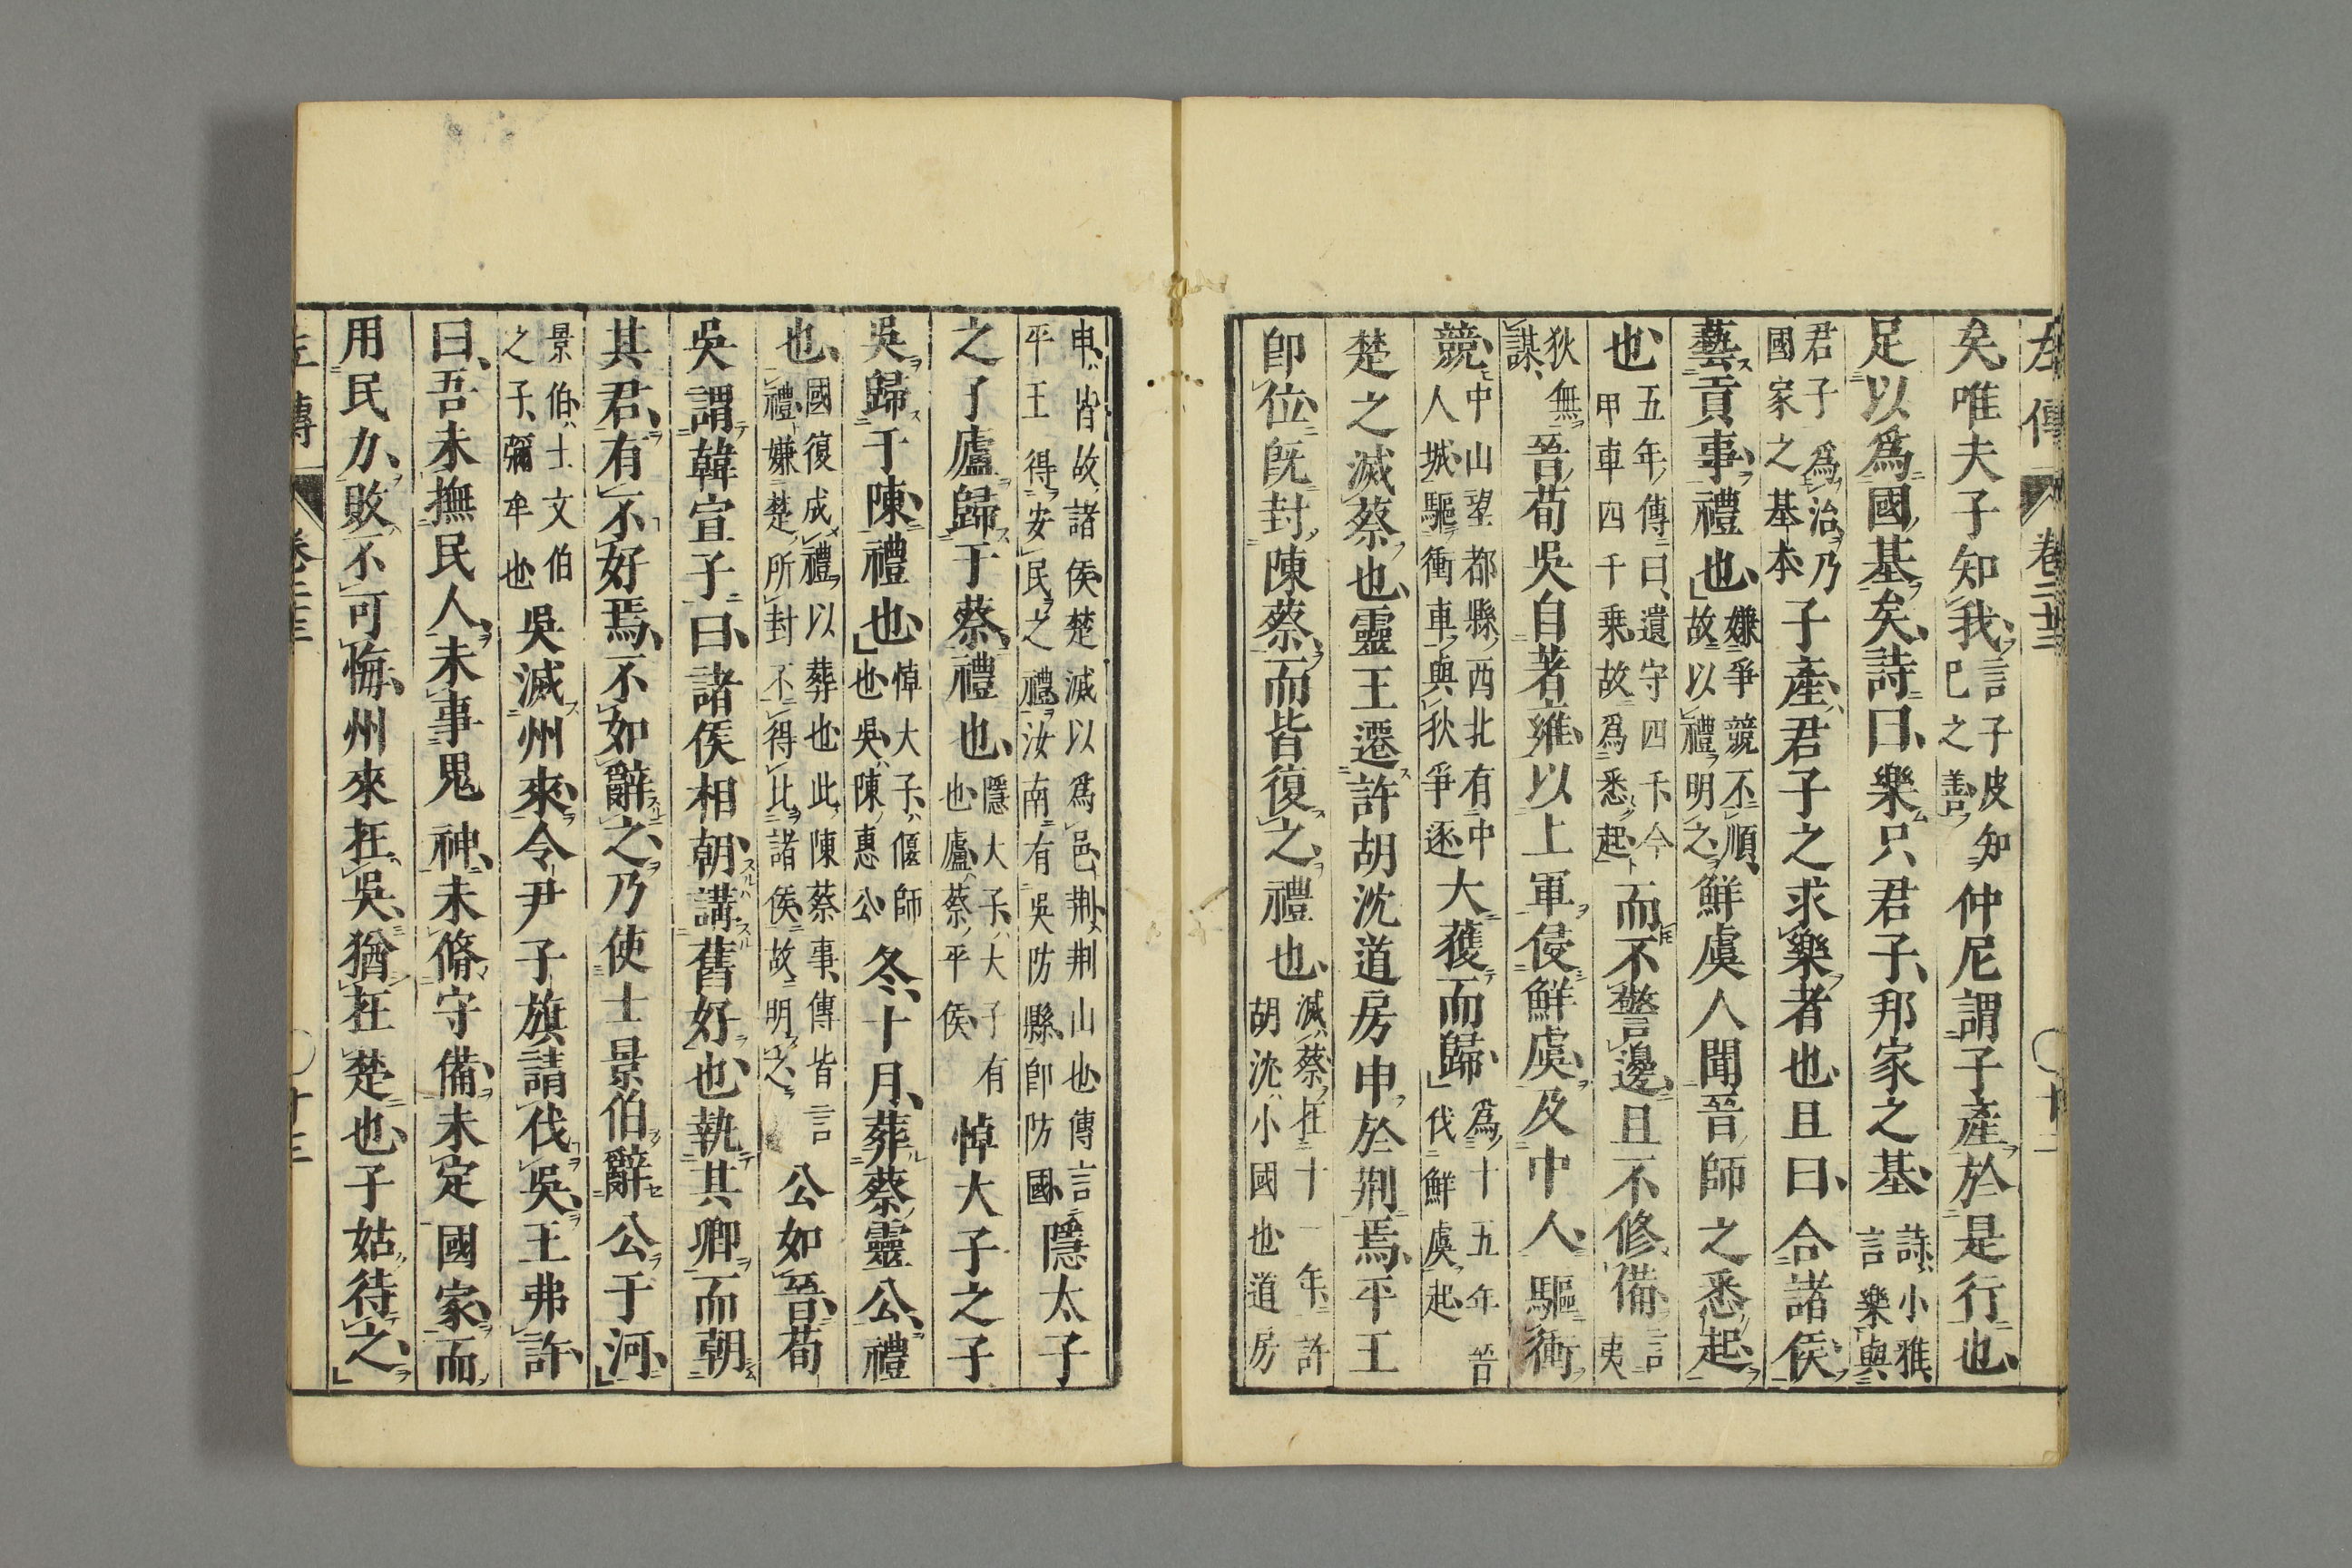 左傳 卷二十三 〇十二
矣唯夫子知我言子皮知己之善仲尼謂子產於是行也
足以爲國基矣詩曰樂只君子邦家之基詩小雅言樂與
君子爲治乃國家之基本子產君子之求樂者也且曰合諸侯
藝貢事禮也嫌爭競不順故以禮明之鮮虞人聞晉師之悉起
也五年傳曰遺守四千今甲車四千乗故爲悉起而不警邊且不修備言夷
狄無謀晉荀吳自著雍以上軍侵鮮虞及中人驅衝
競中山望都縣西北有中人城驅衝車與狄爭逐大獲而歸爲十五年晉伐鮮虞起
楚之滅蔡也靈王遷許胡沈道房申於荆焉平王
卽位旣封陳蔡而皆復之禮也滅蔡在十一年許胡沈小國也道房
申皆故諸侯楚滅以爲邑荆荆山也傳言平王得安民之禮汝南有吳防縣卽防國隱太子
之子廬歸于蔡禮也隱大子大子有也廬蔡平侯悼大子之子
吳歸于陳禮也悼大子偃師也吳陳惠公冬十月葬蔡靈公禮
也國復成禮以葬也此陳蔡事傳皆言禮嫌楚所封不得比諸侯故明之公如晉荀
吳謂韓宣子曰諸侯相朝講舊好也執其卿而朝
其君有不好焉不如辭之乃使士景伯辭公于河
景伯士文伯之子彌牟也吳滅州來令尹子旗請伐吳王弗許
曰吾未撫民人未事鬼神未脩守備未定國家而
用民力敗不可悔州來在吳猶在楚也子姑待之
左傳 卷二十三 〇十三